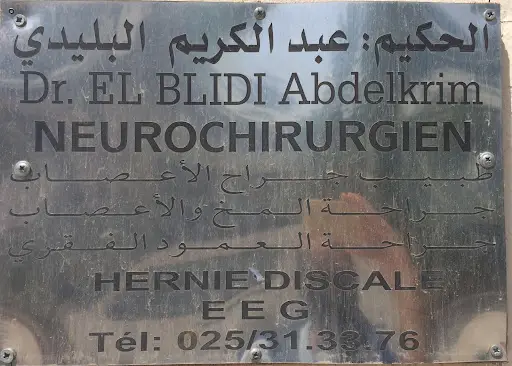 الحكيم: عبد الكريم البليدي
Dr. EL BLIDI Abdelkrim
NEUROCHIRURGIEN
طبيب جراح الأعصاب
جراحة المخ والأعصاب
جراحة العمود الفقري
HERNIE DISCALE
E E G
Tél: 025/31.33.76